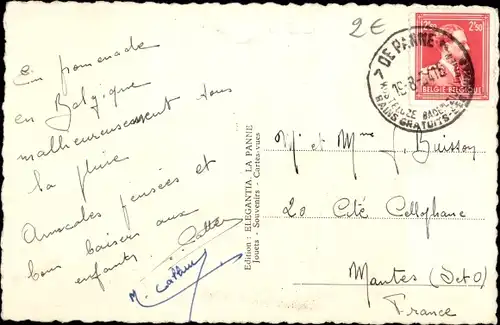 2€
En promenade
en Belgique
malheureusement sous
la pluie
Amicales pensées et
bons baisers aux
enfants.
M. Cattan
Edition: ELEGANTIA, LA PANNE
Jouets - Souvenirs - Cartes-vues
DE PANNE
KOSTELOZE BADEN
BAINS GRATUITS
2.50 2.50
BELGIE BELGIQUE
Mr et Mme J. Buisson
20 Cité Cellophane
Mantes (S et O)
France